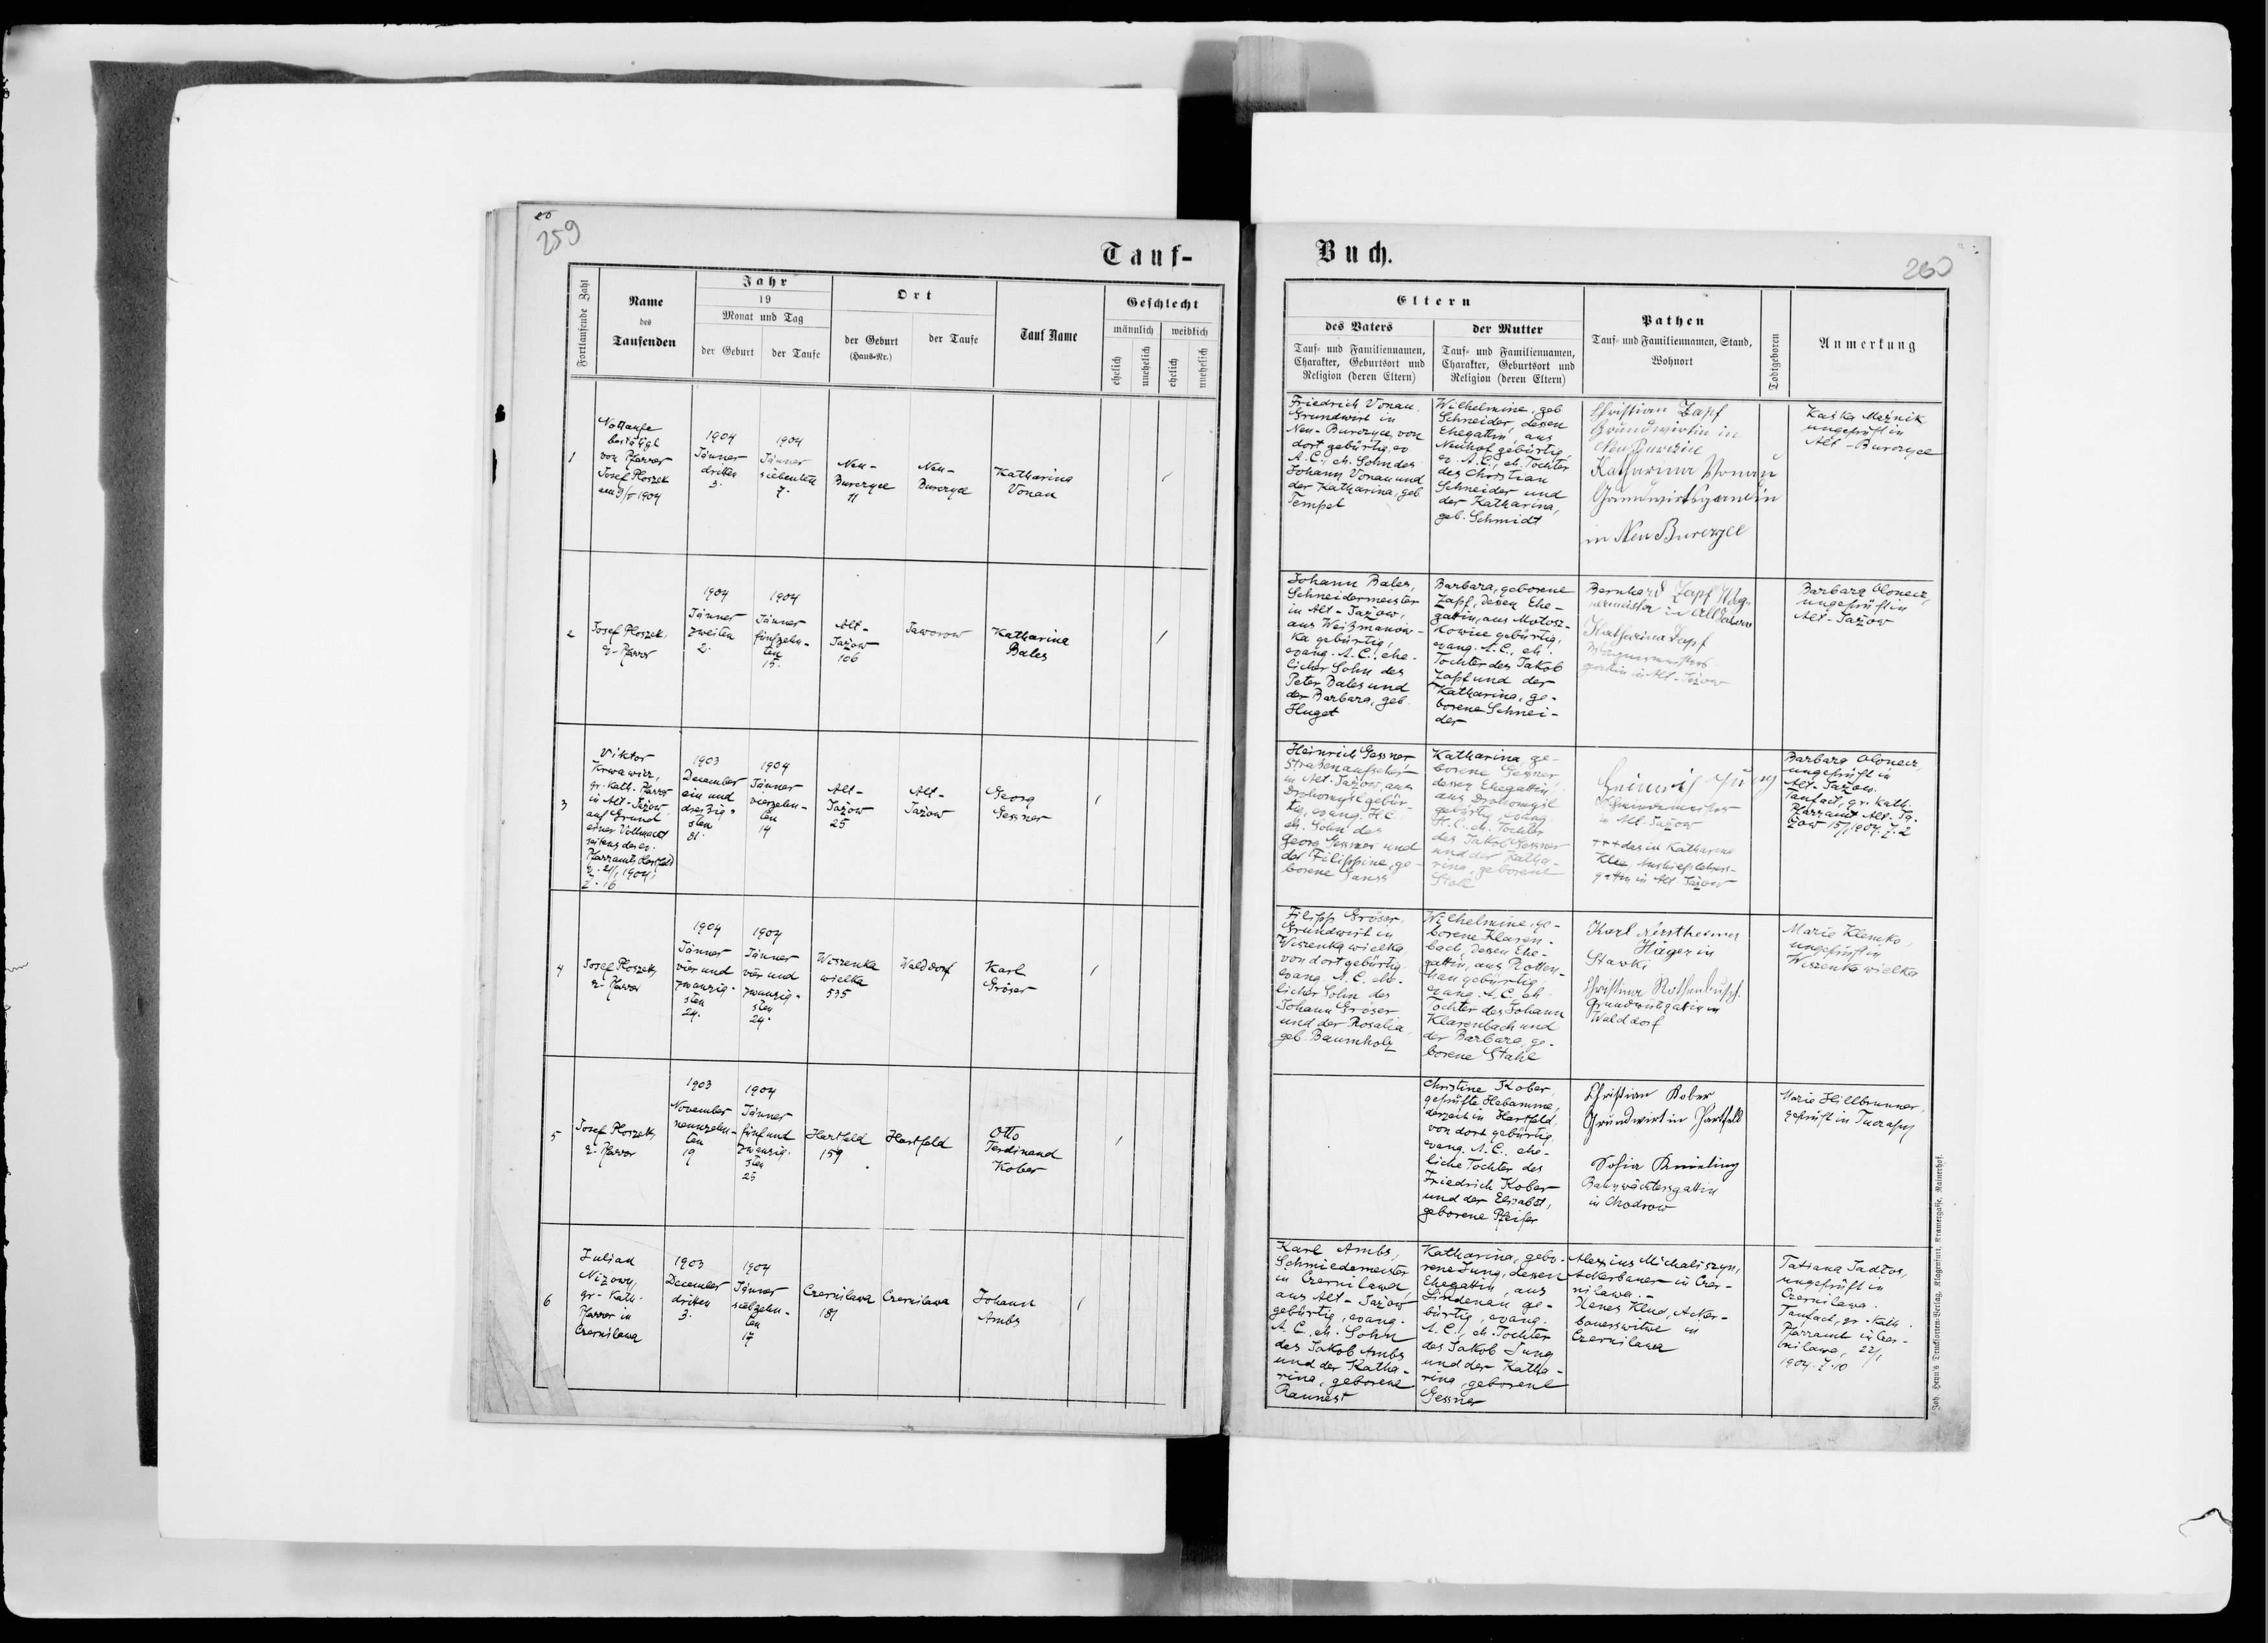 259
Tauf-
Fortlaufende Zahl
Name
des
Taufenden
Jahr
19
Monat und Tag
der Geburt
der Taufe
Ort
der Geburt
(Haus-Nr.)
der Taufe
Tauf Name
Geschlecht
männlich
weiblich
ehelich
unehelich
ehelich
unehelich
1
Nottaufe
bestätigt
von Pfarrer
Josef Ploszek
1904
Jänner
dritten
3.
1904
Jänner
siebenten
7.
Neu-
Burczyce
11
Neu-
Burczyce
Katharina
Vonau
2
Josef Ploszek,
Pfarrer
1904
Jänner
zweiten
2.
1904
Jänner
fünfzehn-
ten
15.
Alt-
Jażow
106
Jaworow
Katharina
Bales
3
Viktor
gr.-kath. Pfarrer
in Alt-Jażow
auf Grund
einer Vollmacht
seitens des ev.
Pfarramts Hartfeld
1904,
Z. 16
1903
December
ein und
dreszig-
sten
31.
1904
Jänner
vierzehn-
ten
14
Alt-
Jażow
25
Alt-
Jażow
Georg
Gessner
4
Josef Ploszek,
Pfarrer
1904
Jänner
vier und
zwanzig-
sten
24.
1904
Jänner
vier und
zwanzig-
sten
24.
Wiszenka
wielka
535
Walddorf
Karl
Gröser
5
Josef Ploszek,
Pfarrer
1903
November
neunzehn-
ten
19
1904
Jänner
fünf und
zwanzig-
sten
25
Hartfeld
159
Hartfeld
Otto
Ferdinand
Kober
6
Julian
Nizowy,
gr.-kath.
Pfarrer in
Czernilawa
1903
December
dritten
3.
1904
Jänner
siebzehn-
ten
17
Czernilawa
181
Czernilawa
Johann
Ambs
Buch.
260
Eltern
des Vaters
Tauf- und Familiennamen,
Charakter, Geburtsort und
Religion (deren Eltern)
der Mutter
Tauf- und Familiennamen,
Charakter, Geburtsort und
Religion (deren Eltern)
Pathen
Tauf- und Familiennamen, Stand,
Wohnort
Todtgeboren
Anmerkung
Friedrich Vonau
Grundwirt in
Neu-Burczyce, von
dort gebürtig, ev.
A.C., eh. Sohn des
Johann Vonau und
der Katharina, geb.
Tempel
Wilhelmine, geb.
Schneider, dessen
Ehegattin, aus
Neuhof gebürtig,
ev. A.C., eh. Tochter
des Christian
Schneider und
der Katharina,
geb. Schmidt
Christian Zapf
Grundwirtin in
Katharina Vonau
Grundwirtsgattin
in Neu Burczyce
Kaśka Meżnik
ungeprüft in
Alt-Burczyce
Johann Bales,
Schneidermeister
in Alt-Jażow,
aus Weiszmanow-
ka gebürtig,
evang. A.C., ehe-
licher Sohn des
Peter Bales und
der Barbara, geb.
Huget
Barbara, geborene
Zapf, dessen Ehe-
gattin, aus Mołosz-
kowice gebürtig,
evang. A.C., eh.
Tochter des Jakob
Zapf und der
Katharina, ge-
borene Schnei-
der
Bernhard Zapf Wag-
nermeister in Alt Jażow
Katharina Zapf
Wagnermeisters-
gattin in Alt-Jażow
Barbara Oloneiz,
ungeprüft in
Alt-Jażow
Heinrich Gessner,
Straßenaufseher
in Alt-Jażow, aus
Drohomysl gebür-
tig, evang. H.C.
eh. Sohn des
Georg Gessner und
der Filippine, ge-
borene Ganss
Katharina, ge-
borene Gessner
dessen Ehegattin,
aus Drohomysl
gebürtig, evang.
H.C. eh. Tochter
des Jakob Gessner
und der Katha-
rina, geborene
Heinrich Jung
in Alt-Jażow
+++ das ist Katharina
Klee, Aushilfslehrers-
gattin in Alt-Jażow
Barbara Oloneiz,
ungeprüft in
Alt-Jażow.
Taufact, gr. kath.
Pfarramt Alt-Ja-
żow 15/1 1904, Z. 2
Filipp Gröser,
Grundwirt in
Wiszenka wielka,
von dort gebürtig
evang. A.C. ehe-
licher Sohn des
Johann Gröser
und der Rosalia,
geb. Baumholz
Wilhelmine, ge-
borene Klaren-
bach, dessen Ehe-
gattin, aus Rotten-
han gebürtig,
evang. A.C., eh.
Tochter des Johann
Klarenbach und
der Barbara, ge-
borene Stahl
Häger in
Stawki
Christine Rothenbusch
Grundwirtsgattin in
Walddorf
Maria Klemko,
ungeprüft in
Wiszenka wielka
Christine Kober,
geprüfte Hebamme,
derzeit in Hartfeld,
von dort gebürtig,
evang. A.C., ehe-
liche Tochter des
Friedrich Kober
und der Elisabet,
geborene Pfeifer
Christian Kober
Grundwirt in Hartfeld
Sofia
Bahnwächtersgattin
in Chodrow
Marie Hillbrunner,
geprüft in
Karl Ambs,
Schmiedemeister
in Czernilawa,
aus Alt-Jażow
gebürtig, evang.
A.C., eh. Sohn
des Jakob Ambs
und der Katha-
rina, geborene
Raunest
Katharina, gebo-
rene Jung, dessen
Ehegattin, aus
Lindenau ge-
bürtig, evang.
A.C., eh. Tochter
des Jakob Jung
und der Katha-
rina, geborene
Gessner
Alexius Michaliszyn,
Ackerbauer in Czer-
nilawa.-
Xenes Klud, Acker-
bauerswitwe in
Czernilawa
Tatiana Jadłos,
ungeprüft in
Czernilawa.
Taufact, gr.-kath.
Pfarramt in Czer-
nilawa, 22/1
1904. Z. 10
Joh. Heyn's Drucksorten-Verlag, Klagenfurt, Kramergasse, Rainerhof.